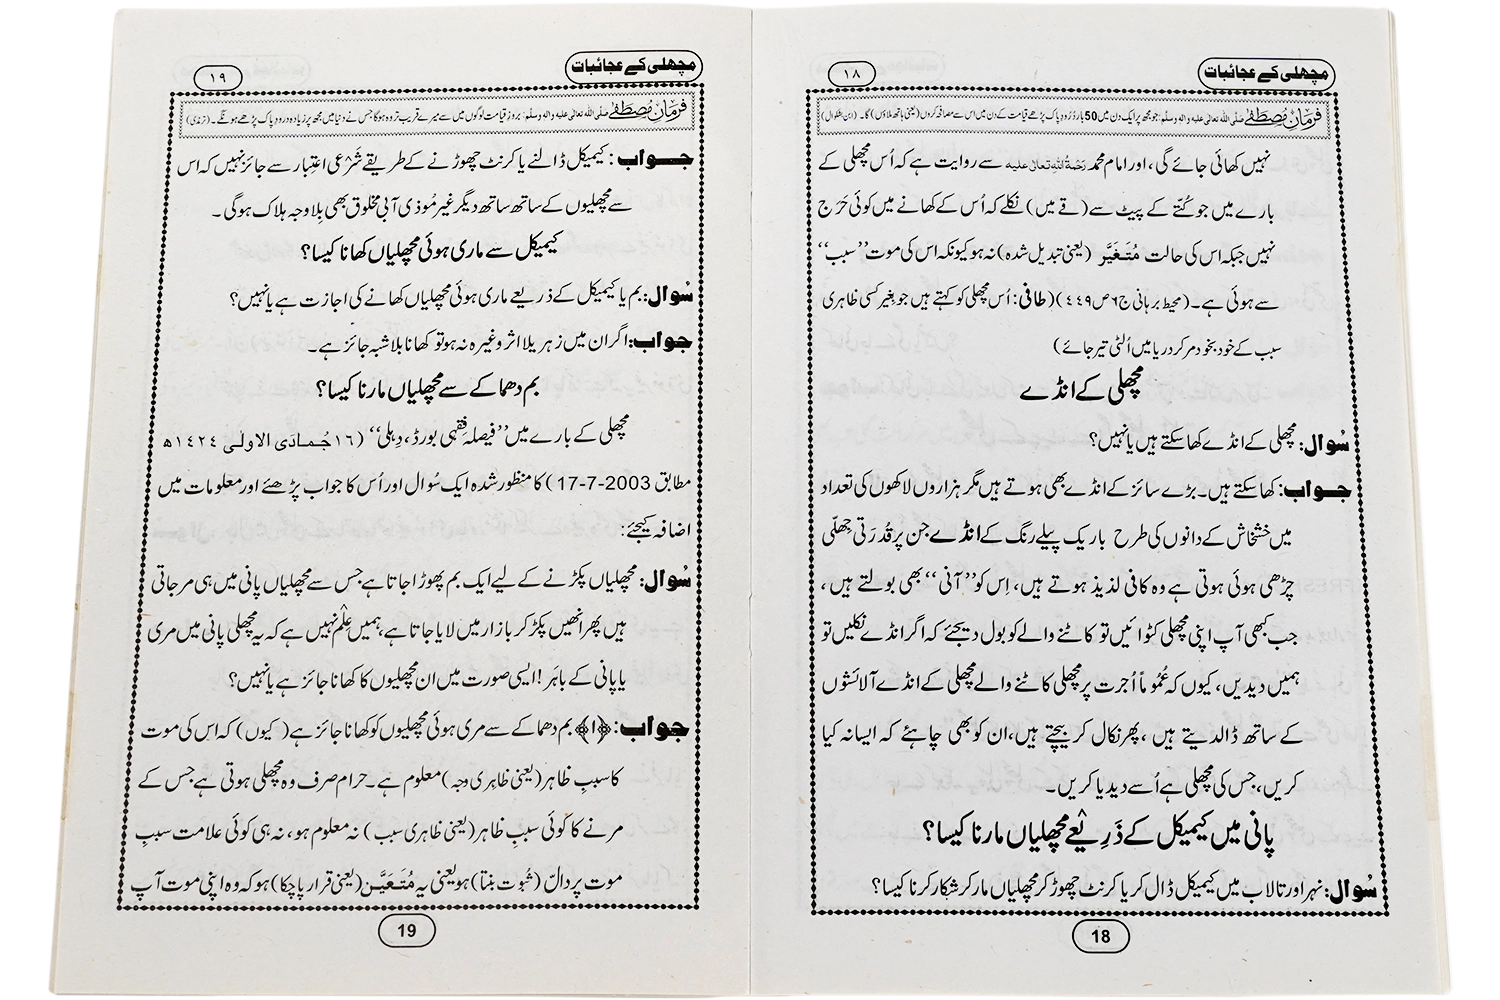 مچھلی کے عجائبات
۱۸
فرمانِ مصطفےٰ صلی اللہ تعالیٰ علیہ والہ وسلم: جو مجھ پر ایک دن میں 50 بار دُرُود پاک پڑھے قیامت کے دن میں اس سے مصافحہ کروں (یعنی ہاتھ ملاؤں) گا۔ (ابن بشکوال)
نہیں کھائی جائے گی، اور امام محمد رَحمۃُ اللہِ تعالیٰ علیہ سے روایت ہے کہ اُس مچھلی کے
بارے میں جو کُتّے کے پیٹ سے (قے میں) نکلے کہ اُس کے کھانے میں کوئی حَرَج
نہیں جبکہ اس کی حالت مُتَغَیَّر (یعنی تبدیل شدہ) نہ ہو کیونکہ اس کی موت ’’سبب‘‘
سے ہوئی ہے۔ (محیط برہانی ج۶ ص۴۴۹) (طافی: اُس مچھلی کو کہتے ہیں جو بِغیر کسی ظاہری
سبب کے خود بخود مر کر دریا میں اُلٹی تیر جائے)
مچھلی کے انڈے
سُوال: مچھلی کے انڈے کھا سکتے ہیں یا نہیں؟
جواب: کھا سکتے ہیں۔ بڑے سائز کے انڈے بھی ہوتے ہیں مگر ہزاروں لاکھوں کی تعداد
میں خشخاش کے دانوں کی طرح باریک پیلے رنگ کے انڈے جن پر قُدرَتی جِھلّی
چڑھی ہوئی ہوتی ہے وہ کافی لذیذ ہوتے ہیں، اِس کو ’’آنی‘‘ بھی بولتے ہیں،
جب کبھی آپ اپنی مچھلی کٹوائیں تو کاٹنے والے کو بول دیجئے کہ اگر انڈے نکلیں تو
ہمیں دیدیں، کیوں کہ عُمُوماً اُجرت پر مچھلی کاٹنے والے مچھلی کے انڈے آلائشوں
کے ساتھ ڈالدیتے ہیں، پھر نکال کر بیچتے ہیں، ان کو بھی چاہئے کہ ایسا نہ کیا
کریں، جس کی مچھلی ہے اُسے دیدیا کریں۔
پانی میں کیمیکل کے ذَرِیعے مچھلیاں مارنا کیسا؟
سُوال: نہر اور تالاب میں کیمیکل ڈال کر یا کرنٹ چھوڑ کر مچھلیاں مار کر شکار کرنا کیسا؟
18
مچھلی کے عجائبات
۱۹
فرمانِ مصطفےٰ صلی اللہ تعالیٰ علیہ والہ وسلم: بروزِ قیامت لوگوں میں سے میرے قریب تر وہ ہوگا جس نے دنیا میں مجھ پر زیادہ درود پاک پڑھے ہونگے۔ (ترمذی)
جواب: کیمیکل ڈالنے یا کرنٹ چھوڑنے کے طریقے شَرْعی اعتِبار سے جائز نہیں کہ اس
سے مچھلیوں کے ساتھ ساتھ دیگر غیر مُوذی آبی مخلوق بھی بِلاوجہ ہلاک ہوگی۔
کیمیکل سے ماری ہوئی مچھلیاں کھانا کیسا؟
سُوال: بم یا کیمیکل کے ذریعے ماری ہوئی مچھلیاں کھانے کی اجازت ہے یا نہیں؟
جواب: اگر ان میں زہریلا اثر وغیرہ نہ ہو تو کھانا بلاشبہ جائز ہے۔
بم دھماکے سے مچھلیاں مارنا کیسا؟
مچھلی کے بارے میں ’’فیصلہ فِقہی بورڈ، دِہلی‘‘ (۱۶ جُمادَی الاولٰی ۱۴۲۴ھ
مطابق 2003-7-17) کا منظور شدہ ایک سُوال اور اُس کا جواب پڑھئے اور معلومات میں
اضافہ کیجئے:
سُوال: مچھلیاں پکڑنے کے لیے ایک بم پھوڑا جاتا ہے جس سے مچھلیاں پانی میں ہی مرجاتی
ہیں پھر انھیں پکڑ کر بازار میں لایا جاتا ہے، ہمیں عِلْم نہیں ہے کہ یہ مچھلی پانی میں مری
یا پانی کے باہَر! ایسی صورت میں ان مچھلیوں کا کھانا جائز ہے یا نہیں؟
جواب: ﴿۱﴾ بم دھماکے سے مری ہوئی مچھلیوں کو کھانا جائز ہے (کیوں) کہ اس کی موت
کا سببِ ظاہر (یعنی ظاہری وجہ) معلوم ہے۔ حرام صرف وہ مچھلی ہوتی ہے جس کے
مرنے کا کوئی سببِ ظاہر (یعنی ظاہری سبب) نہ معلوم ہو، نہ ہی کوئی علامت سببِ
موت پر دالّ (ثُبوت بنتا) ہو یعنی یہ مُتَعَیَّن (یعنی قرار پاچکا) ہو کہ وہ اپنی موت آپ
19